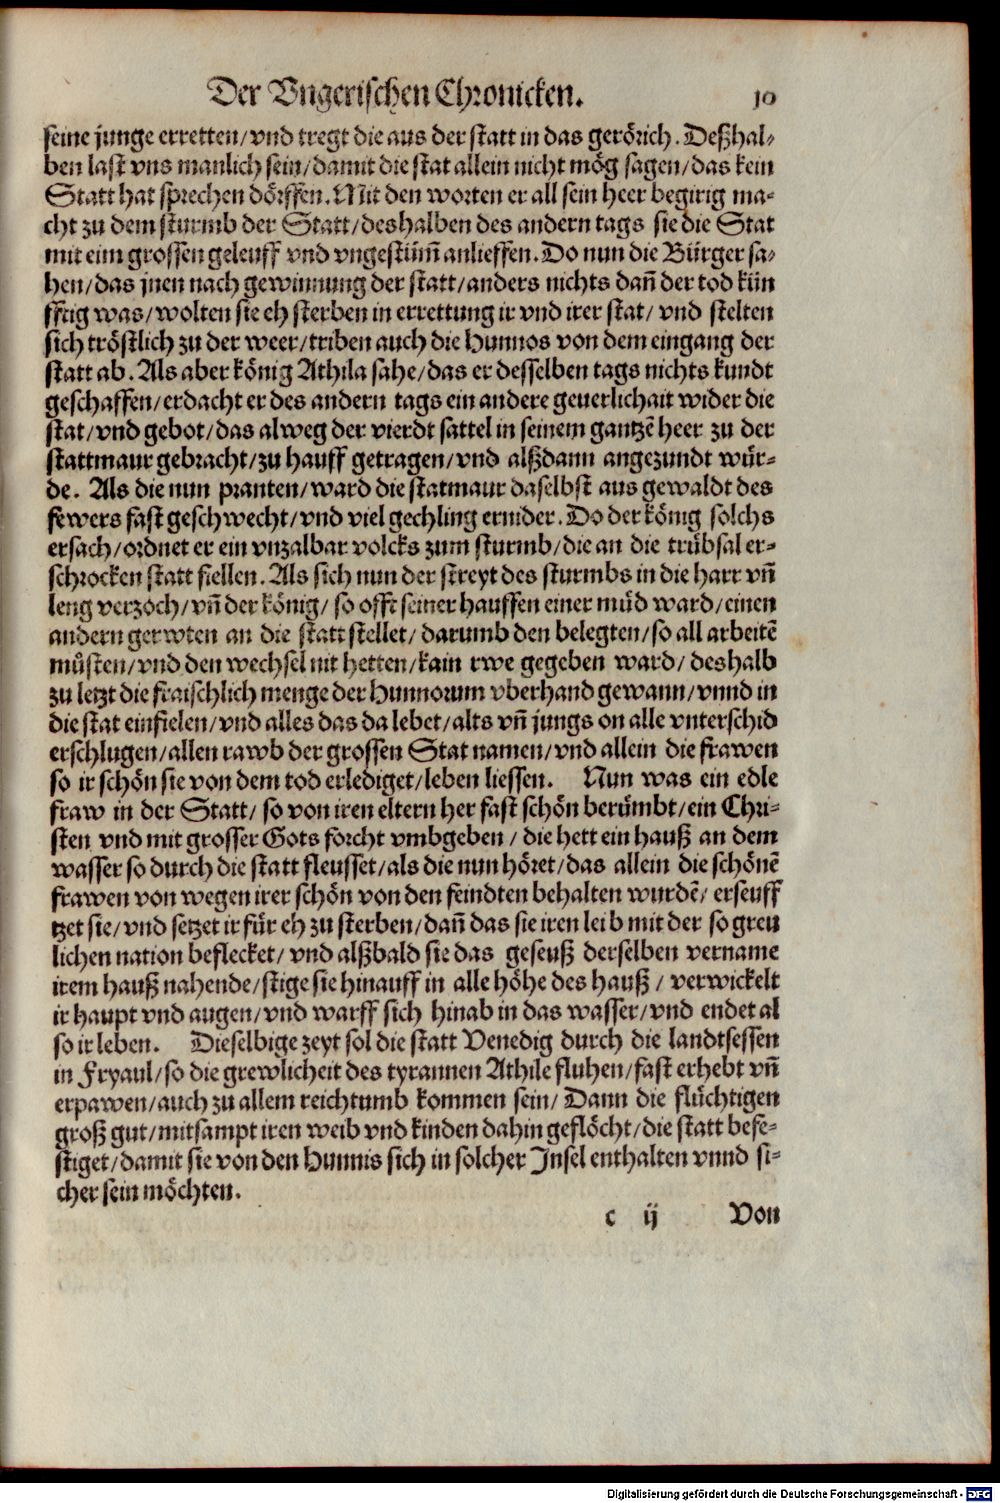 Der Vngerischen Chronicken. 10
seine junge erretten/vnd tregt die aus der statt in das gerörich. Deßhal-
ben last vns manlich sein/damit die stat allein nicht mög sagen/das kein
Statt hat sprechen dörffen. Mit den worten er all sein heer begirig ma-
cht zu dem sturmb der Statt/deshalben des andern tags sie die Stat
mit eim grossen geleuff vnd vngestüm̄ anlieffen. Do nun die Bürger sa-
hen/das jnen nach gewinnung der statt/anders nichts dañ der tod kün
fftig was/wolten sie eh sterben in errettung ir vnd irer stat/ vnd stelten
sich tröstlich zu der weer/triben auch die Hunnos von dem eingang der
statt ab. Als aber könig Athila sahe/das er desselben tags nichts kundt
geschaffen/erdacht er des andern tags ein andere geuerlichait wider die
stat/vnd gebot/das alweg der vierdt sattel in seinem gantzē heer zu der
stattmaur gebracht/zu hauff getragen/vnd alßdann angezundt wür-
de. Als die nun pranten/ward die statmaur daselbst aus gewaldt des
fewers fast geschwecht/vnd viel gechling ernider. Do der könig solchs
ersach/ordnet er ein vnzalbar volcks zum sturmb/die an die trübsal er-
schrocken statt fiellen. Als sich nun der streyt des sturmbs in die harr vñ
leng verzoch/vñ der könig/ so offt seiner hauffen einer müd ward/einen
andern gerwten an die statt stellet/darumb den belegten/so all arbeitē
müsten/vnd den wechsel nit hetten/kain rwe gegeben ward/deshalb
zu letzt die fraischlich menge der Hunnorum vberhand gewann/vnnd in
die stat einfielen/vnd alles das da lebet/alts vñ jungs on alle vnterschid
erschlugen/allen rawb der grossen Stat namen/vnd allein die frawen
so ir schön sie von dem tod erlediget/leben liessen. Nun was ein edle
fraw in der Statt/ so von iren eltern her fast schön berümbt/ein Chri-
sten vnd mit grosser Gots forcht vmbgeben/ die hett ein hauß an dem
wasser so durch die statt fleusset/als die nun höret/das allein die schönē
frawen von wegen irer schön von den feindten behalten wurdē/ erseuff
tzet sie/vnd setzet ir für eh zu sterben/dañ das sie iren leib mit der so greu
lichen nation beflecket/ vnd alßbald sie das geseuß derselben vername
irem hauß nahende/stige sie hinauff in alle höhe des hauß/ verwickelt
ir haupt vnd augen/vnd warff sich hinab in das wasser/vnd endet al
so ir leben. Dieselbige zeyt sol die statt Venedig durch die landtsessen
in Fryaul/so die grewlicheit des tyrannen Athile fluhen/fast erhebt vñ
erpawen/auch zu allem reichtumb kommen sein/ Dann die flüchtigen
groß gut/mitsampt iren weib vnd kinden dahin geflöcht/die statt befe-
stiget/damit sie von den Hunnis sich in solcher Insel enthalten vnnd si-
cher sein möchten.
c ij Von
Digitalisierung gefördert durch die Deutsche Forschungsgemeinschaft - DFG